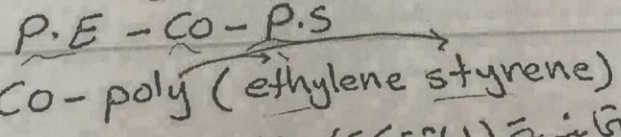 P.E - Co - P.S
Co - poly (ethylene styrene)